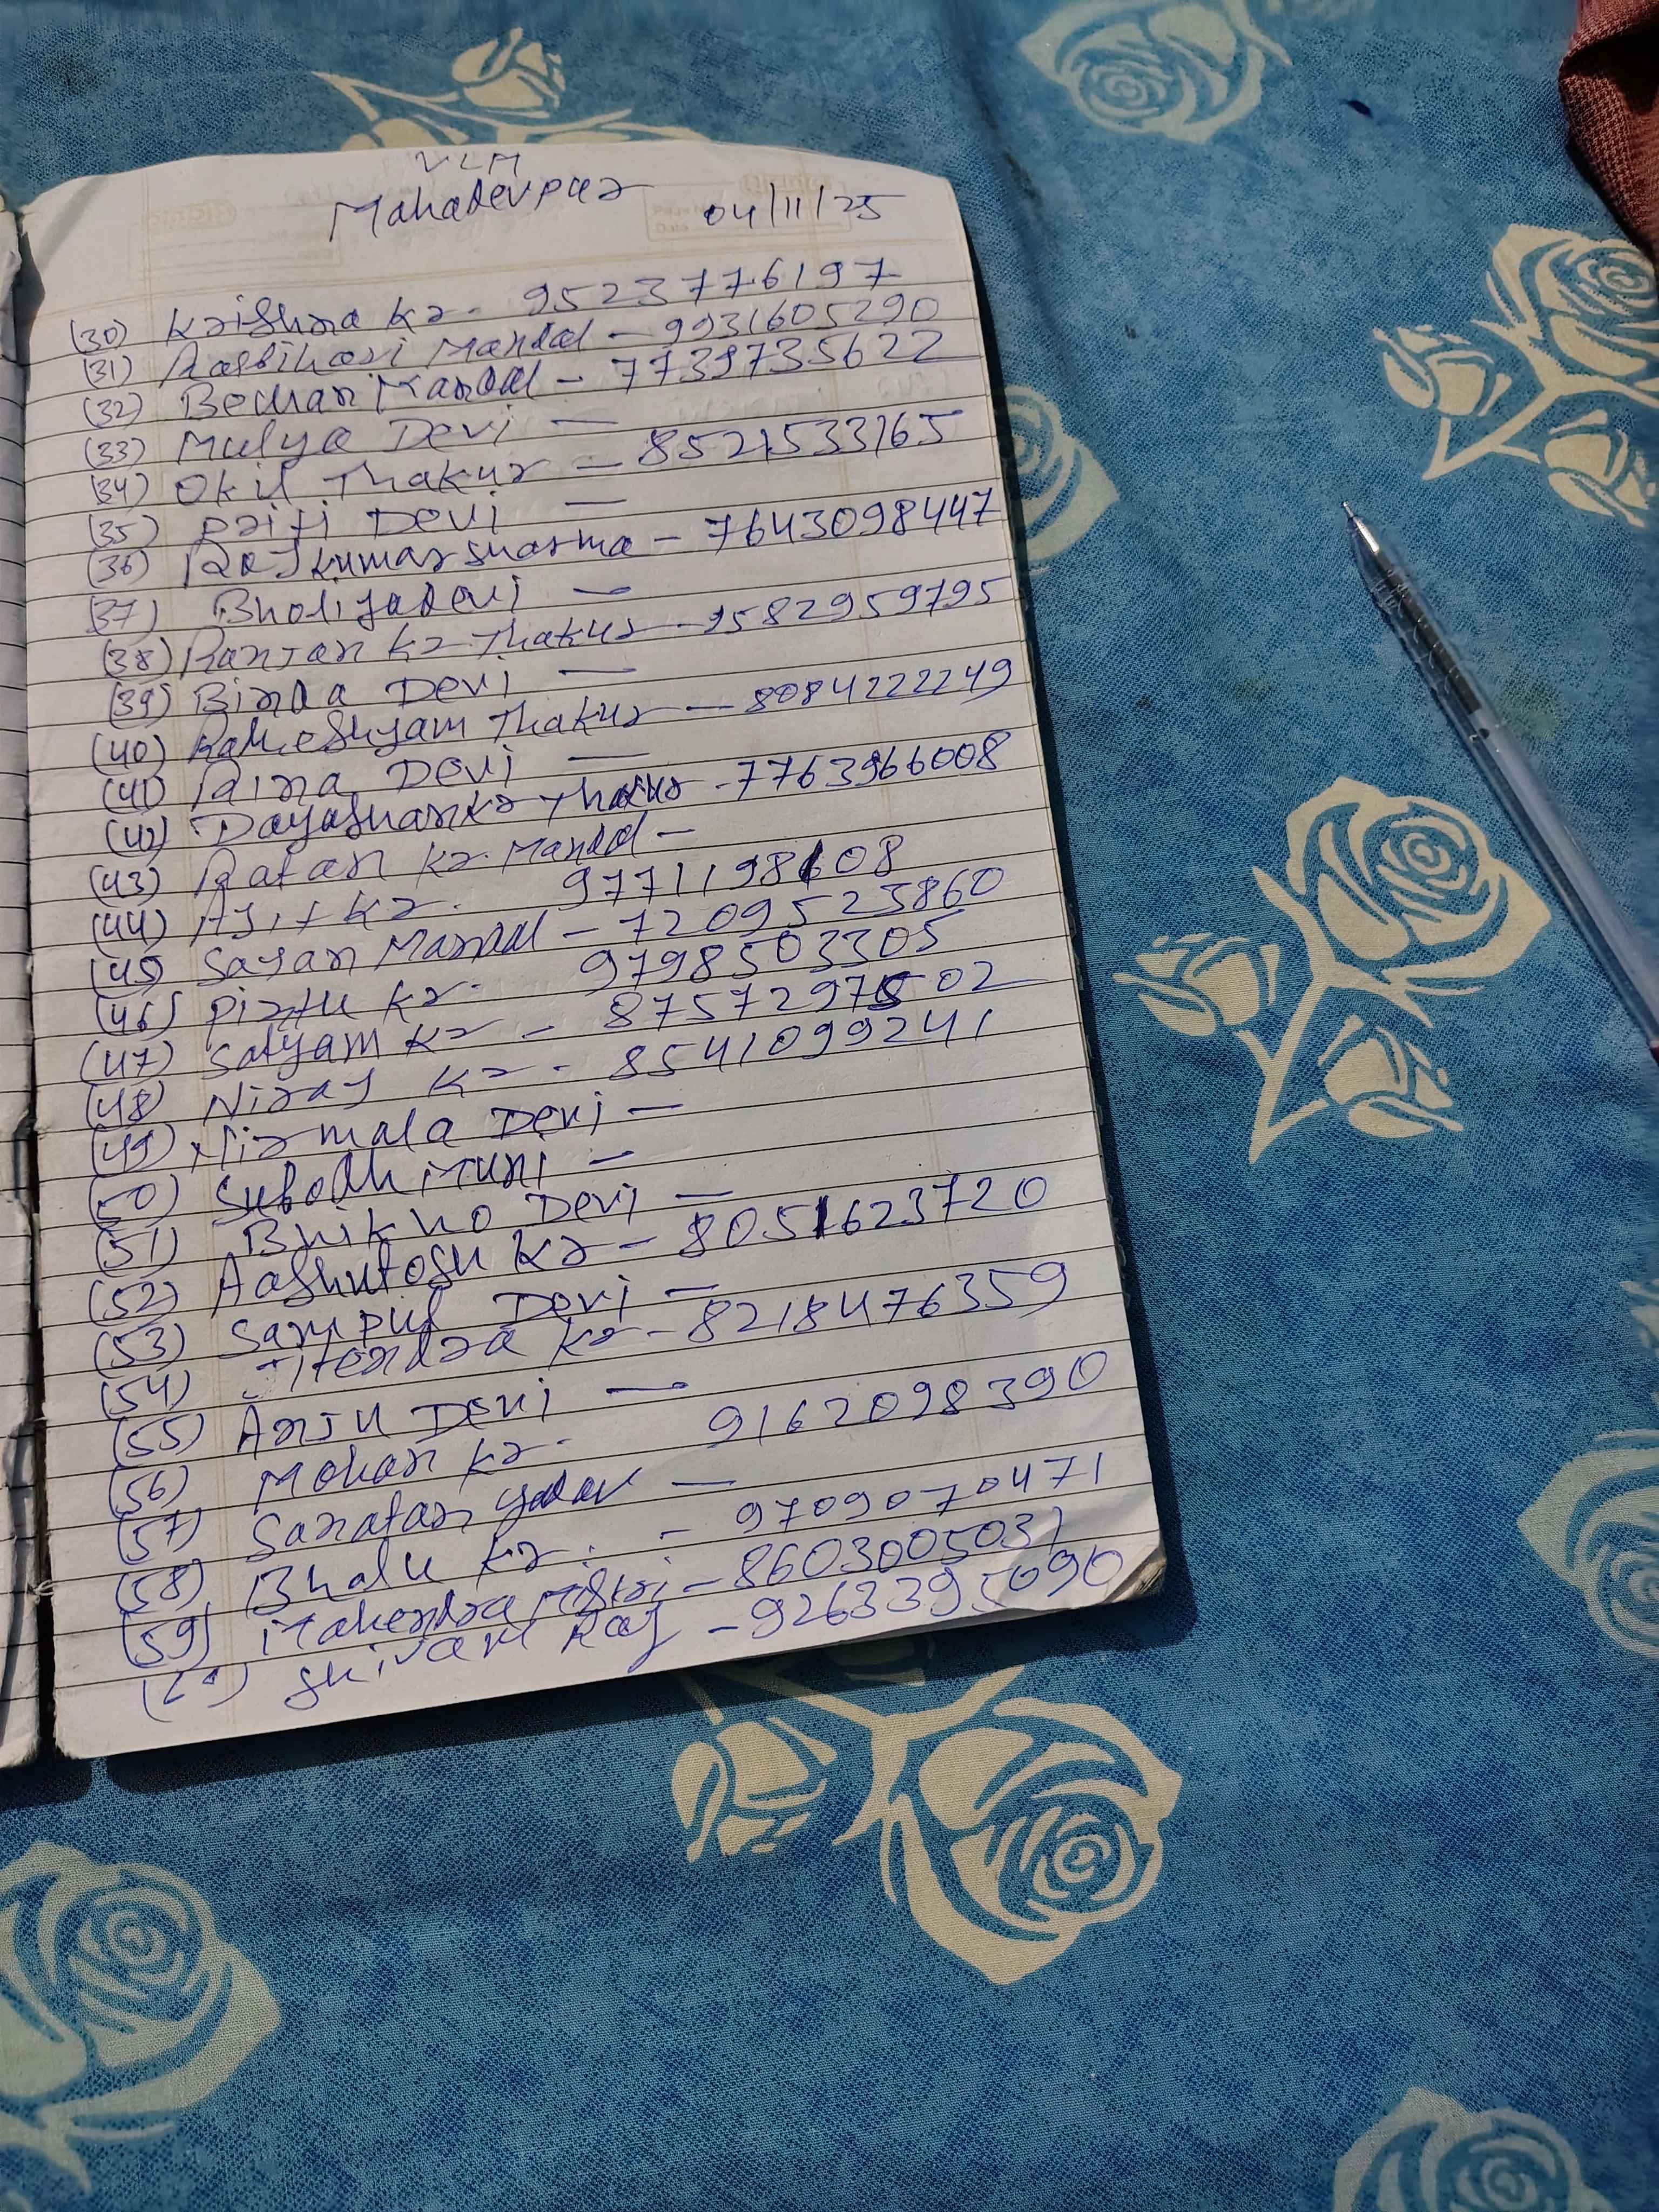 VLM
Mahadevpur 04/11/25
(30) Krishna Kr. 9523776197
(31) Rasbihari Mandal - 9931605290
(32) Bechan Mandal - 7739735622
(33) Mulya Devi -
(34) Okil Thakur - 8521533165
(35) Priti Devi -
(36) Raj kumar sharma - 7643098447
(37) Bholiya devi -
(38) Ranjan Kr Thakur - 9582959795
(39) Binda Devi -
(40) Radheshyam Thakur - 8084222249
(41) Rina Devi -
(42) Dayashankr Thakur - 7763966008
(43) Ratan Kr. Mandal -
(44) Ajit Kr. 9771198608
(45) Sajan Mandal - 7209523860
(46) Pintu Kr. 9798503305
(47) Satyam Kr - 8757297502
(48) Niraj Kr - 8541099241
(49) Nirmala Devi -
(50) Subodh Muni -
(51) Bhikho Devi -
(52) Aashutosh Kr - 8051623720
(53) Sampul Devi -
(54) Jitendra Kr - 8218476359
(55) Anju Devi -
(56) Mohan Kr. 9162098390
(57) Sanatan yadav -
(58) Bhalu Kr. - 9709070471
(59) Mahendra Mistri - 8603005031
(60) Shivam Raj - 9263395090